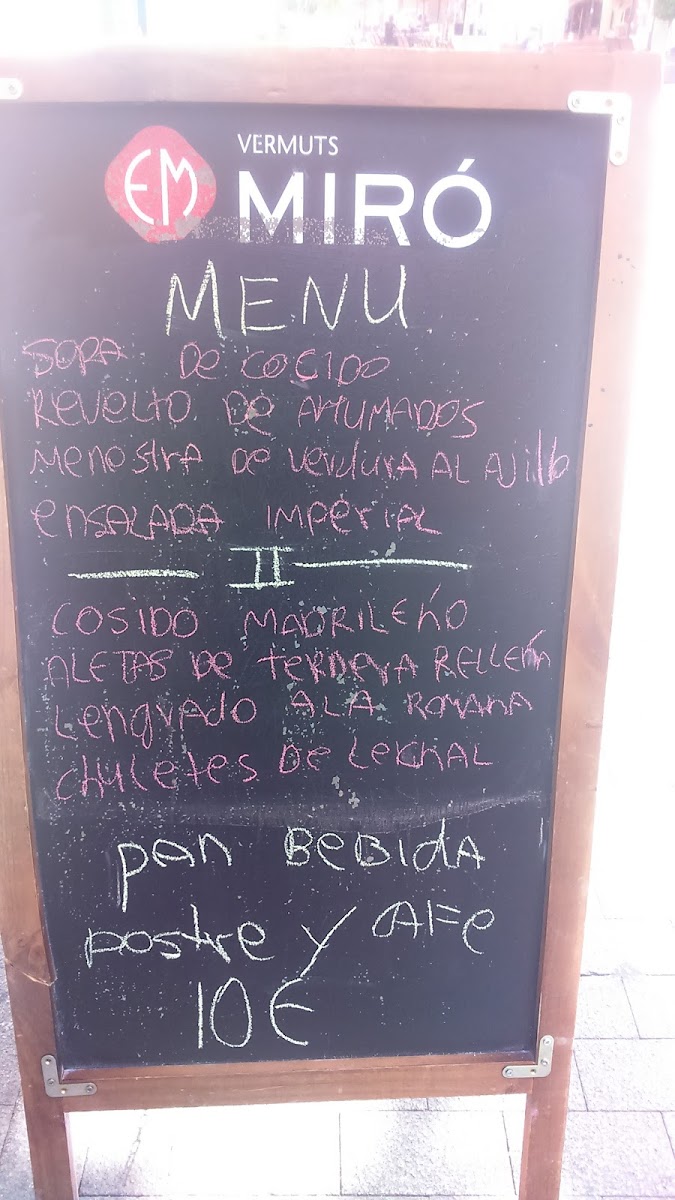 EM VERMUTS
MIRÓ
MENU
SOPA DE COCIDO
REVELTO DE AHUMADOS
MENESTRA DE VERDURA AL AJILLO
ENSALADA IMPERIAL
II
COSIDO MADRILEÑO
ALETAS DE TERNERA RELLEÑA
LENGUADO A LA ROMANA
CHULETES DE LECHAL
pan BEBIDA
postre y AFe
10€